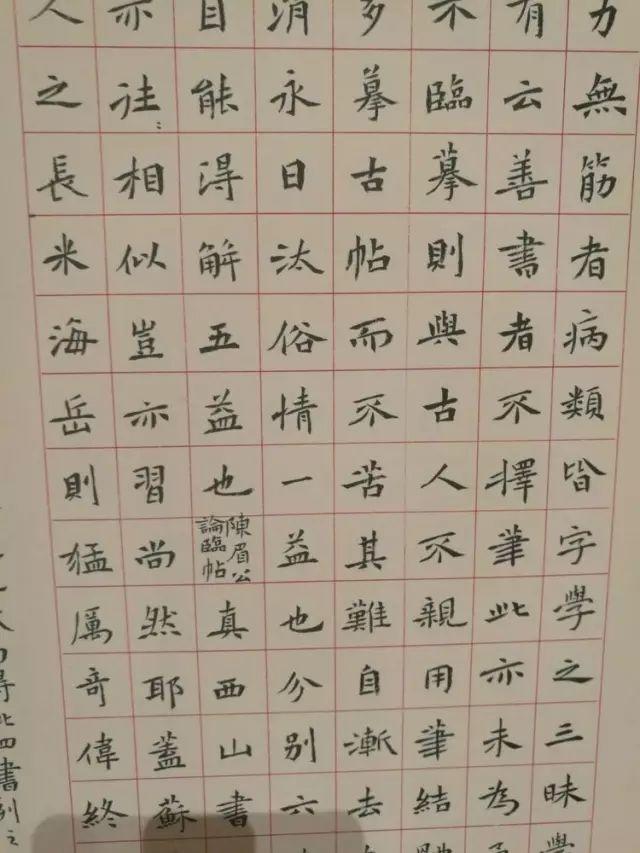 力無筋者病類皆字學之三昧學
有云善書者不擇筆此亦未為
不臨摹則與古人不親用筆結體
多摹古帖而不苦其難自漸去
消永日汰俗情一益也分別六
目能得解五益也陳眉公論臨帖真西山書
亦往〻相似豈亦習尚然耶蓋蘇
人之長米海岳則猛厲奇偉終
得此四書列之